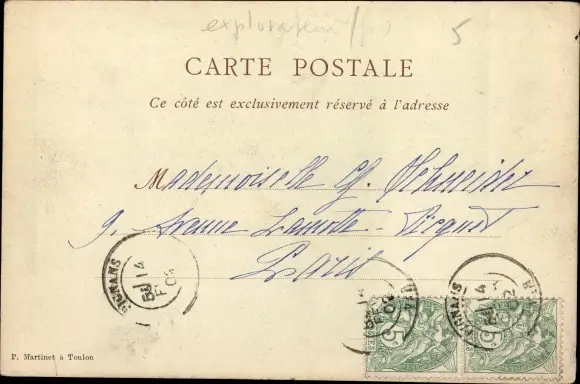 explorateur
5
CARTE POSTALE
Ce côté est exclusivement réservé à l'adresse
Mademoiselle G. Schneider
9. Avenue Lamotte-Picquet
Paris
PIGNANS
14
02
PIGNANS
14
02
5
5
P. Martinet à Toulon